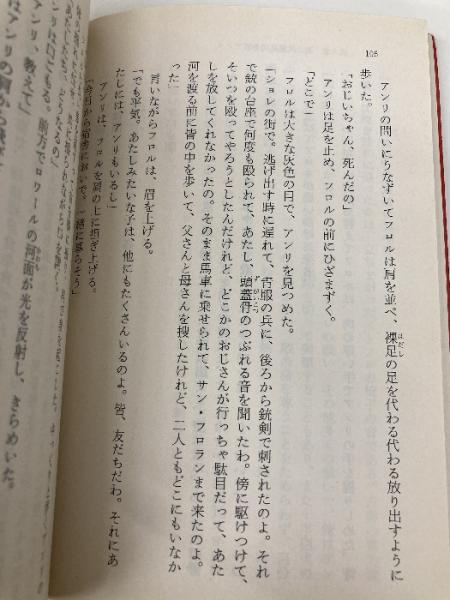 105
アンリの問いにうなずいてフロルは肩を並べ、裸足の足を代わる代わる放り出すように
歩いた。
「おじいちゃん、死んだの」
アンリは足を止め、フロルの前にひざまずく。
「どこで」
フロルは大きな灰色の目で、アンリを見つめた。
「ショレの街で。逃げ出す時に遅れて、青服の兵に、後ろから銃剣で刺されたのよ。それ
で銃の台座で何度も殴られて、あたし、頭蓋骨のつぶれる音を聞いたわ。傍に駆けつけて、
そいつを殴ってやろうとしたんだけれど、どこかのおじさんが行っちゃ駄目だって、あた
しを放してくれなかったの。そのまま馬車に乗せられて、サン・フロランまで来たのよ。
河を渡る前に皆の中を歩いて、父さんと母さんを捜したけれど、二人ともどこにもいなか
った」
言いながらフロルは、眉を上げる。
「でも平気。あたしみたいな子は、他にもたくさんいるのよ。皆、友だちだわ。それにあ
たしには、アンリもいるし」
アンリは、フロルを肩の上に担ぎ上げる。
「今日から宿舎においで。一緒に暮らそう」
アンリは口ごもる。前方でロワールの河面が光を反射し、きらめいた。